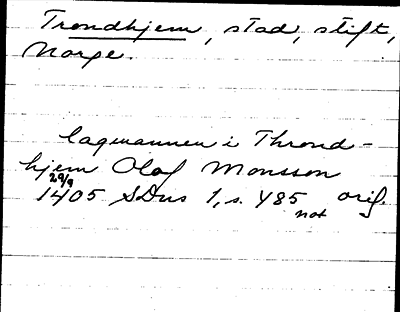 Trondhjem, stad, stift,
Norge.
lagmannen i Thrond-
hjem Olaf Monsson
29/9
1405 SDns 1, s. 485 orig.
not